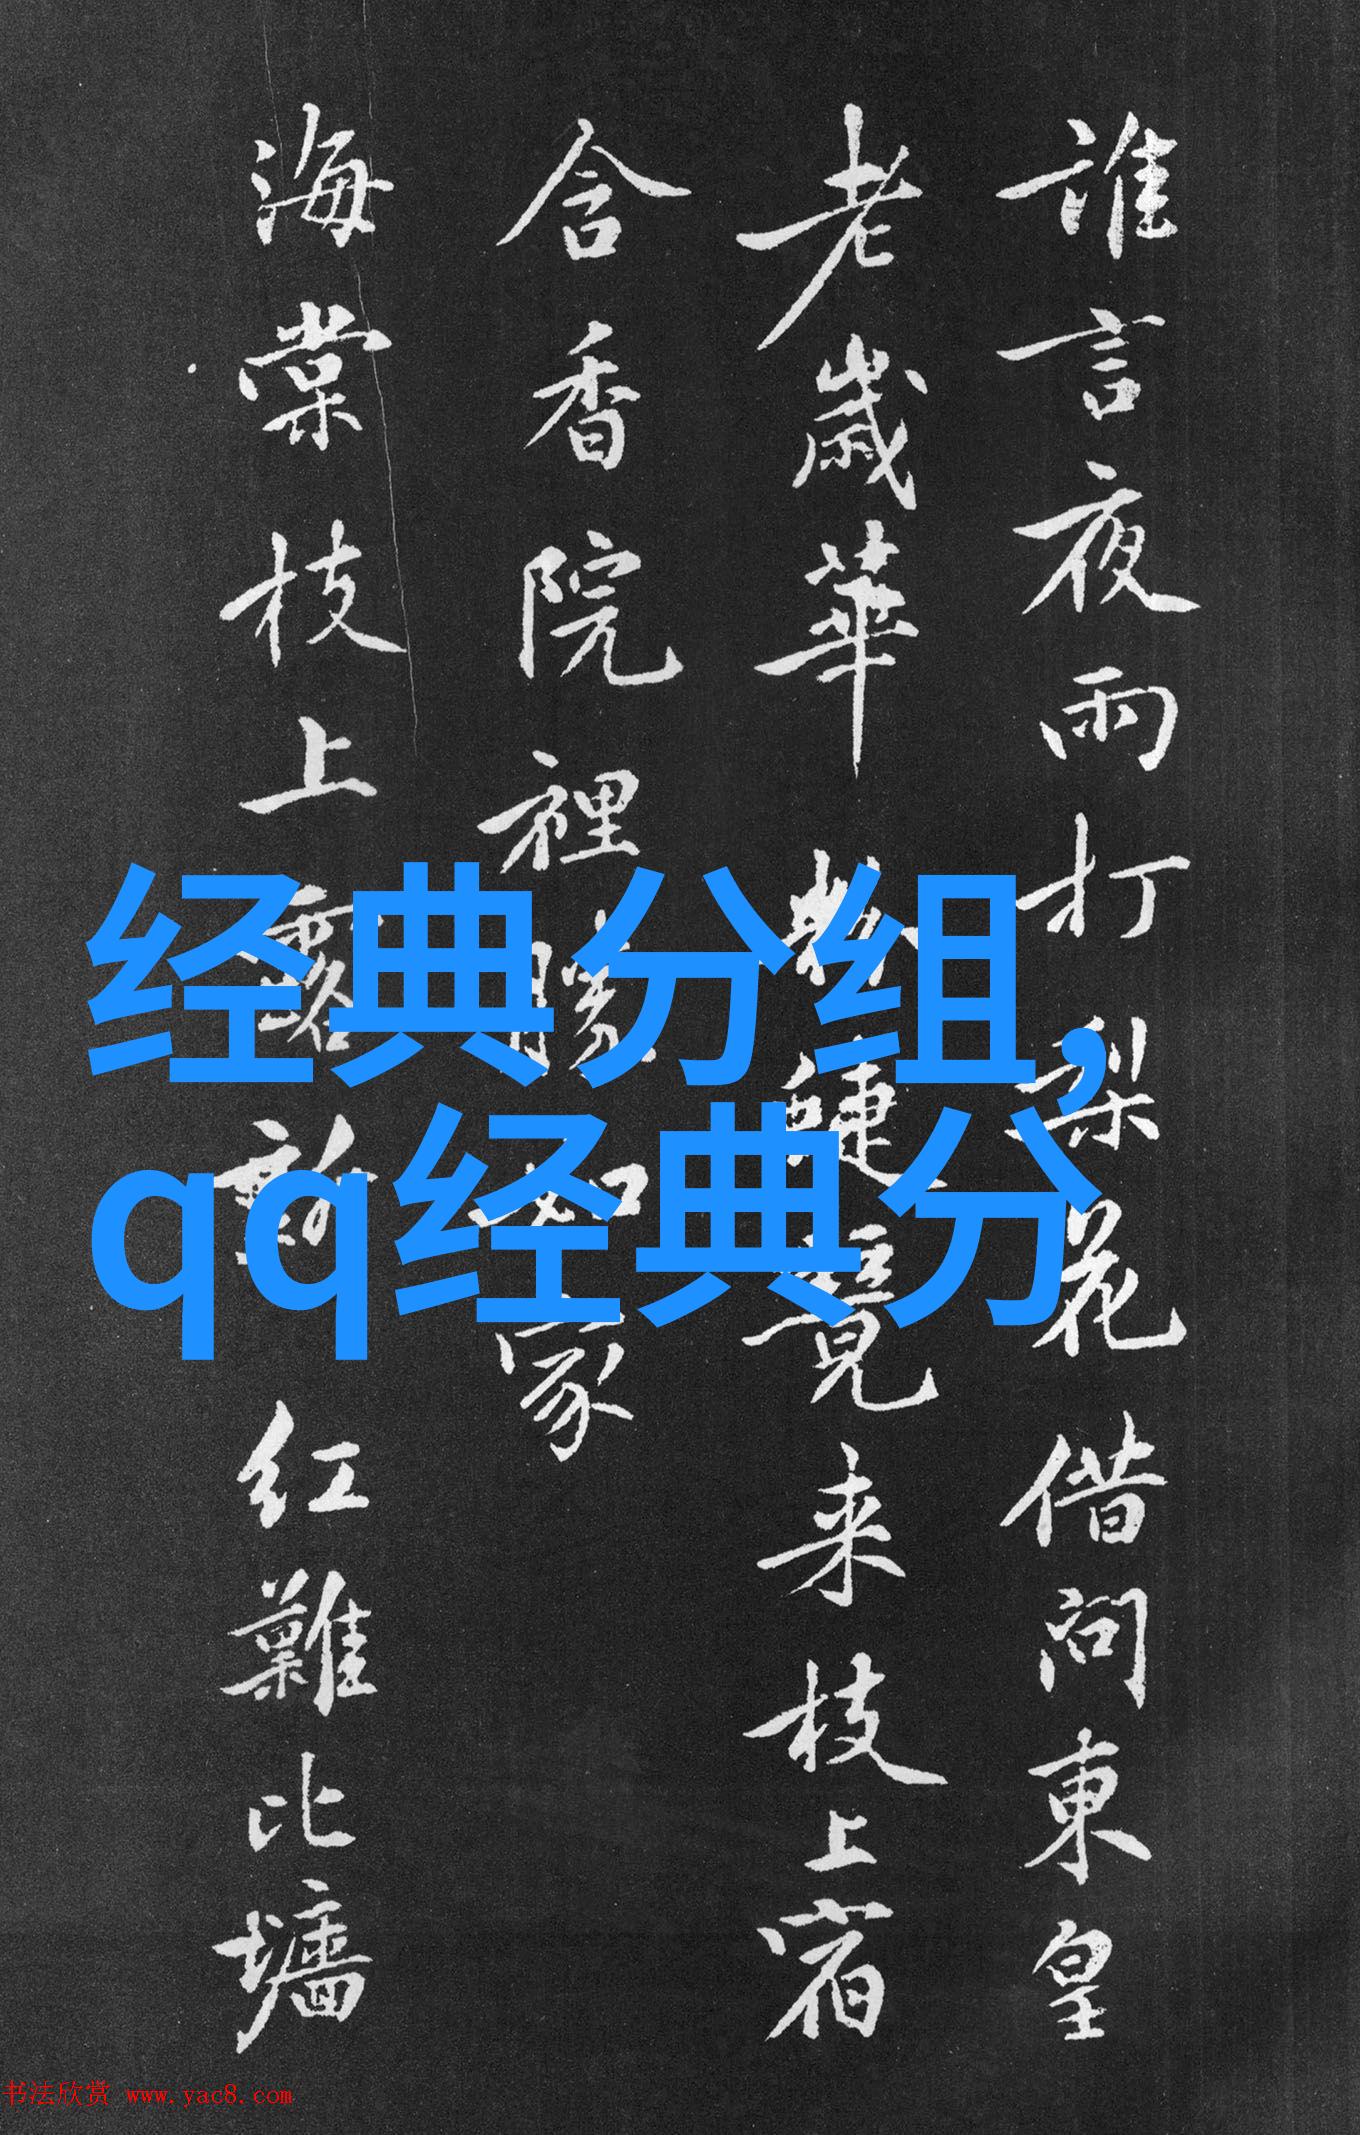 誰言夜雨打梨花借問東皇
老歲華
來枝上宿
含香院裡勝如家
海棠枝上露新紅難比墻
经典分组，
qq经典分
书法欣赏 www.yac8.com